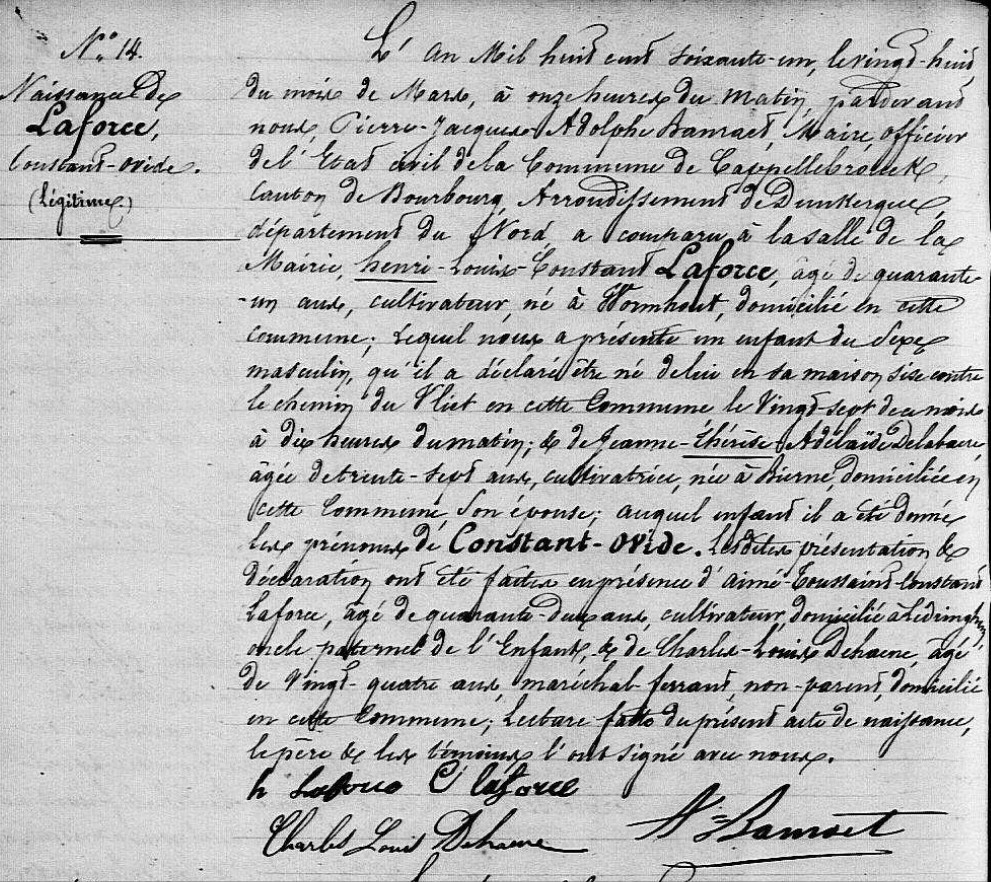 N.° 14.
Naissance de
Laforce,
Constant-Ovide.
(Légitime)
L'An Mil huit cent soixante-un, le vingt-huit,
du mois de Mars, à onze heures du Matin, pardevant
nous, Pierre-Jacques Adolphe Banraet, Maire, officier
de l'Etat civil de la Commune de Cappellebroück,
Canton de Bourbourg, Arrondissement de Dunkerque,
département du Nord, a comparu, à la salle de la
Mairie, henri-Louis-Constant Laforce, âgé de quarante-
-un ans, cultivateur, né à Wormhout, domicilié en cette
commune; Lequel nous a présenté un enfant du Sexe
masculin, qu'il a déclaré être né de lui en sa maison sise contre
le chemin du Vliet en cette Commune le Vingt-sept de ce mois
à dix heures du matin; & de Jeanne-thérèse Adélaïde Delabaere,
âgée de trente-sept ans, cultivatrice, née à Bierne, domiciliée en
cette Commune, Son épouse; auquel enfant il a été donné
les prénoms de Constant-Ovide. Lesdites présentation &
déclaration ont été faites en présence d'aimé-Toussaint-Constant
Laforce, âgé de quarante-deux ans, cultivateur, domicilié à Ledringhem,
oncle paternel de l'Enfant, & de Charles-Louis Dehaene, âgé
de Vingt-quatre ans, maréchal-ferrant, non-parent, domicilié
en cette Commune; Lecture faite du présent acte de naissance,
le père & les témoins l'ont signé avec nous.
h Laforce C laforce
Charles Louis Dehaene A.=Banraet